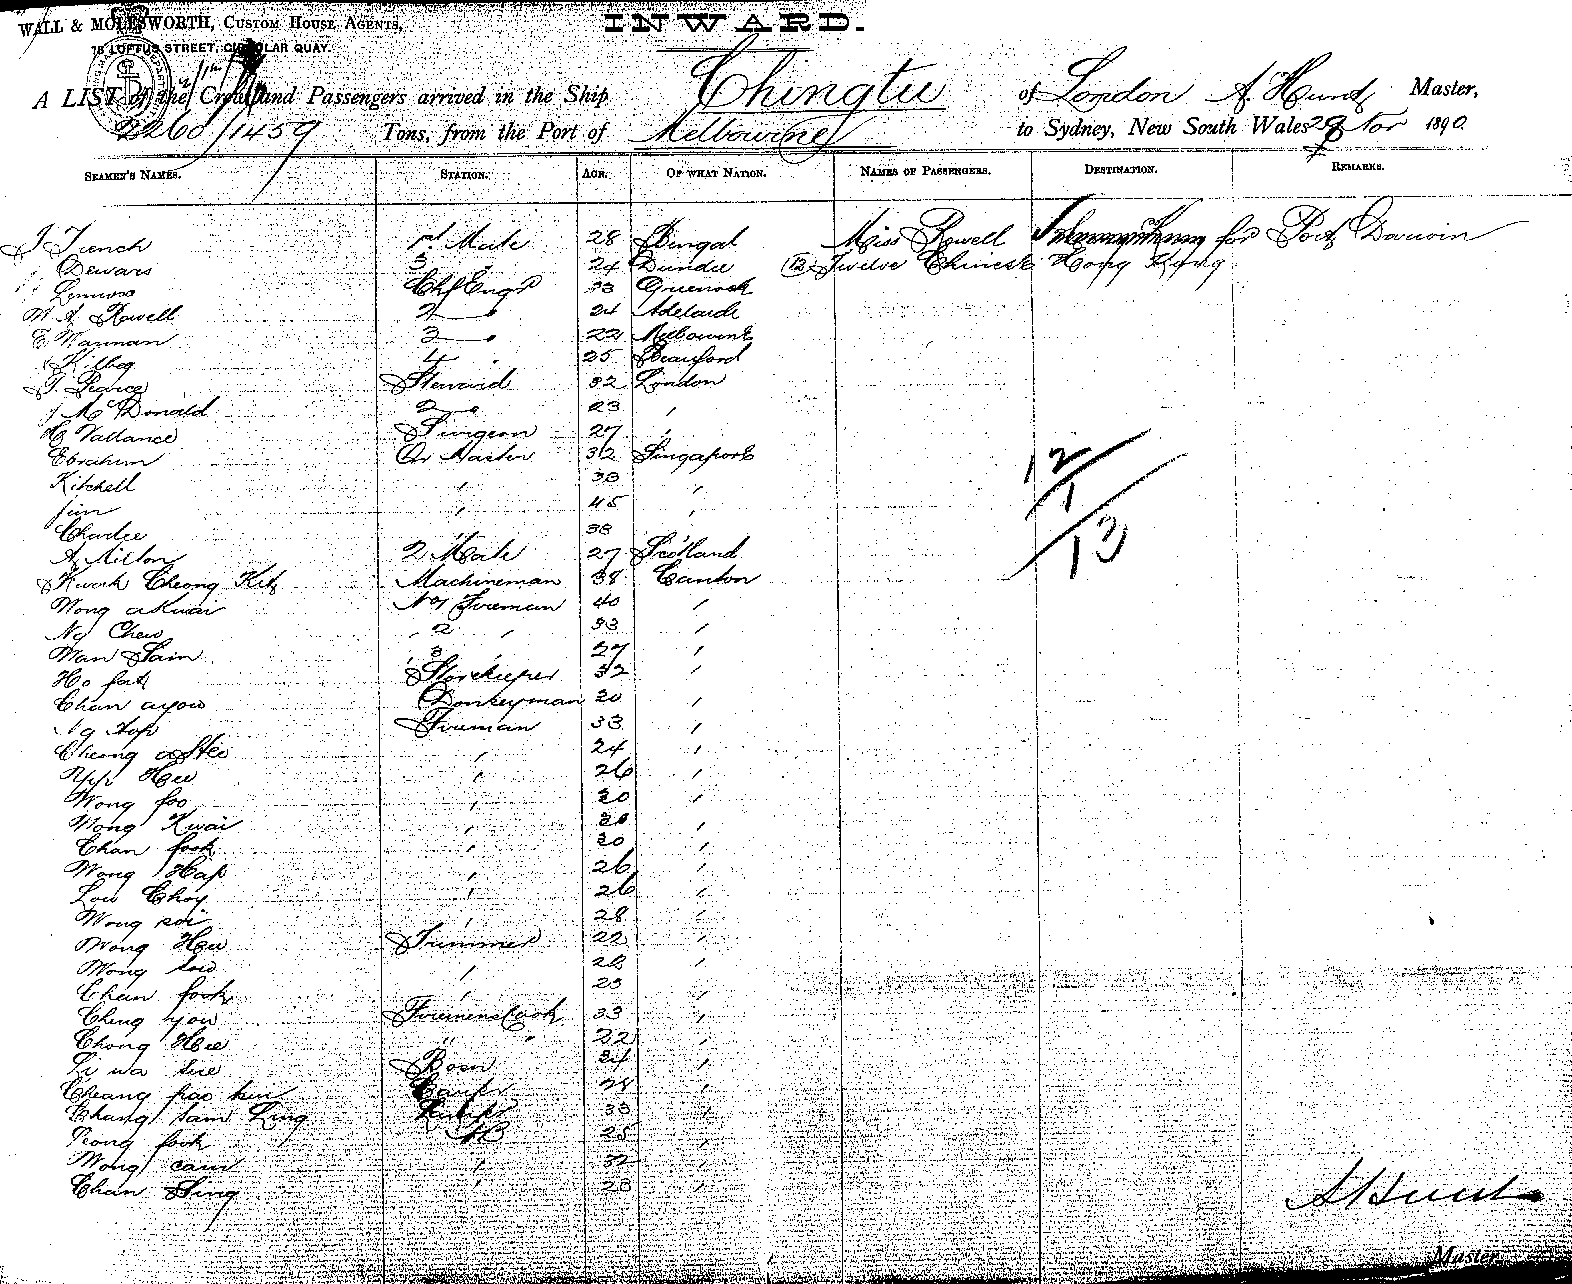 INWARD.
WALL & MOLESWORTH, CUSTOM HOUSE AGENTS,
78 LOFTUS STREET, CIRCULAR QUAY.
A LIST of the Crew and Passengers arrived in the Ship Chingtu of London A. Hunt Master,
2260/1459 Tons, from the Port of Melbourne to Sydney, New South Wales Nov 1890.
SEAMEN'S NAMES. STATION. AGE. OF WHAT NATION. NAMES OF PASSENGERS. DESTINATION. REMARKS.
J French 1st Mate 28 Miss Rowell for Port Darwin
Dewars 3 24 Dundee (12) Twelve Chinese Hong Kong
Lennox Chf Engr 33 Greenock
W. A. Rowell 2 " 24 Adelaide
E Warman 3 " 22 Melbourne
4 " 25
Steward 32 London
J McDonald 2 " 23 "
H Vallance Surgeon 27 "
Ebrahim Qr Master 32 Singapore
Kitchell " 30 "
Jim " 45 "
Charlie " 38
A. Milton 2 Mate 27 Scotland
Kwork Cheong Kit Machineman 38 Canton
Wong akwai No 1 Fireman 40 "
Ng Chew " 2 " 33 "
Man Sain " 3 " 27 "
Ho fat Storekeeper 32 "
Chan ayow Donkeyman 30 "
Ng Hop Fireman 33 "
Cheong a Hee " 24 "
Yip Hee " 26 "
Wong foo " 30 "
Wong Kwai " 30 "
Chan fook " 30 "
Wong Hap " 26 "
Low Choy " 26 "
Wong soi " 28 "
Wong Hee Trimmer 22 "
Wong sow " "
Chan fook " 23 "
Ching you Firemens Cook 33 "
Chong Hee " " 22 "
Li wa sue Bosn 34 "
Cheang pao hin Carpr 28 "
Chang sam Ling 30 "
Leong fook AB 25 "
Wong cam " 32 "
Chan Sing " 28 "
12
1
13
A Hunt
Master